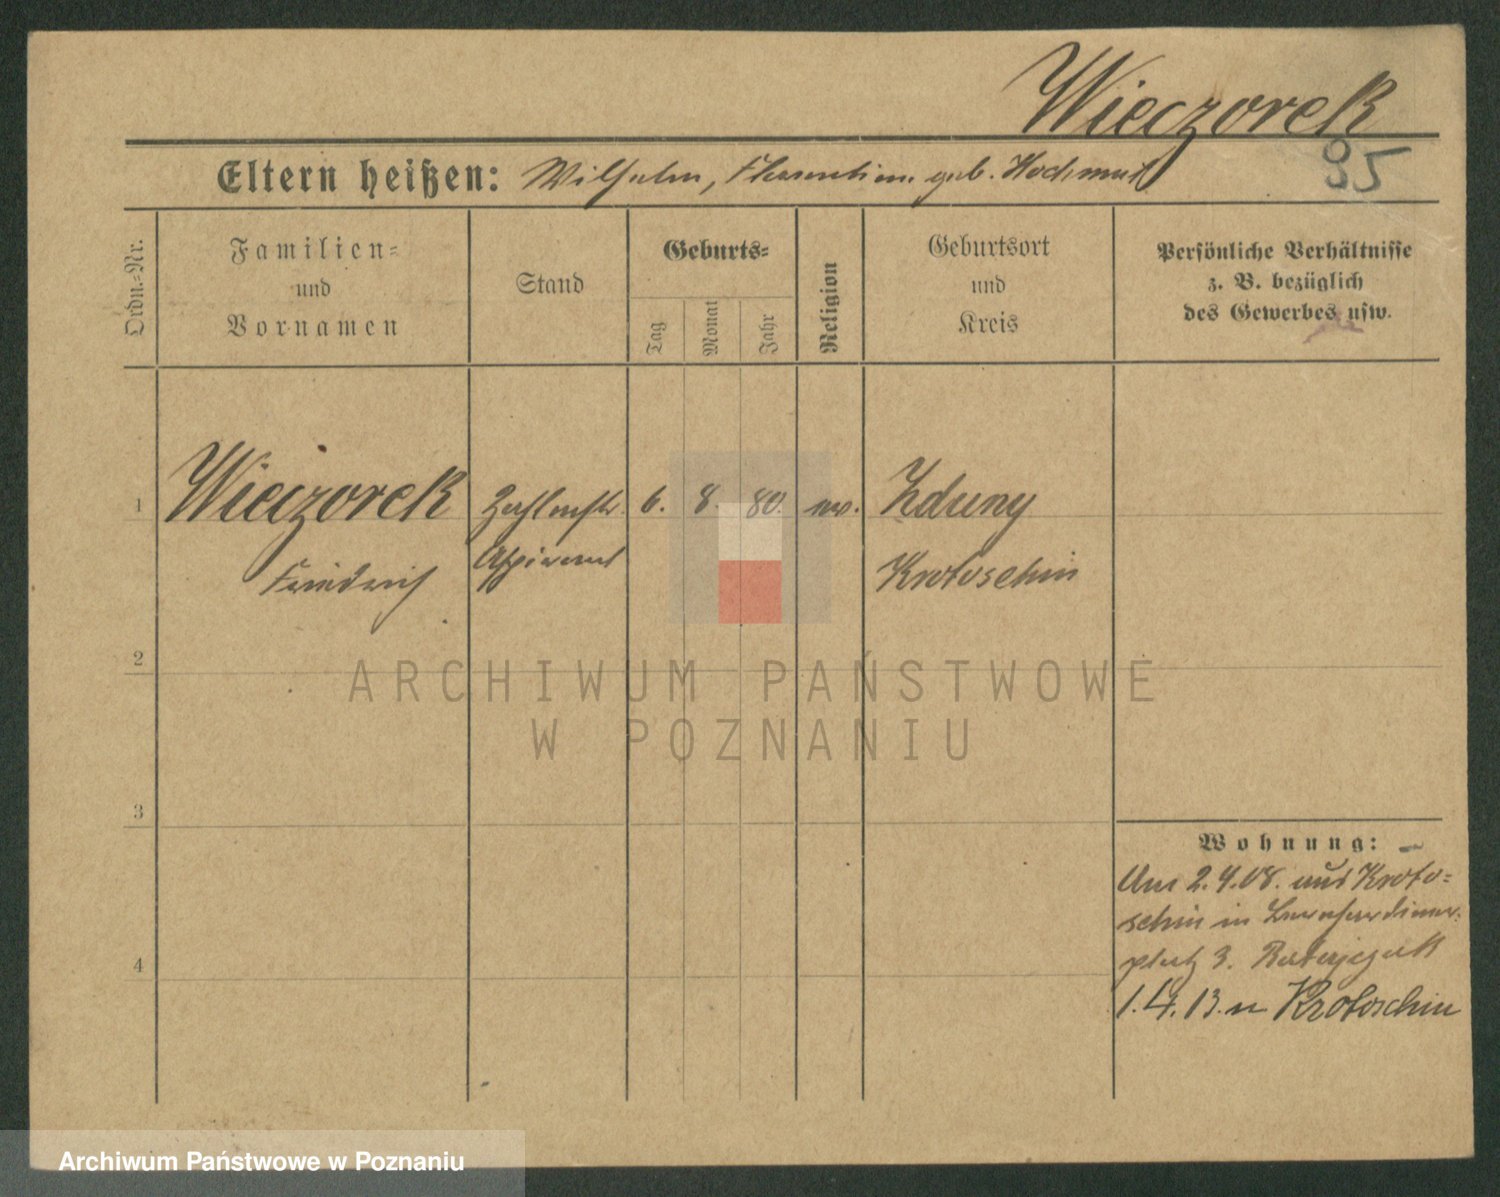 Wieczorek
95
Eltern heißen: Wilhelm, Florentine geb. Hochmut
Ordn.-Nr.
Familien-
und
Vornamen
Stand
Geburts-
Tag
Monat
Jahr
Religion
Geburtsort
und
Kreis
Persönliche Verhältnisse
z. B. bezüglich
des Gewerbes usw.
1 Wieczorek Zahlmstr. 6. 8. 80. ev. Zduny
Friedrich Aspirant Krotoschin
2
3
4
Wohnung:
Am 2.4.08. aus Kroto=
schin in Bernhardiner=
platz 3. Ratajczak
1.4.13. n Krotoschin
ARCHIWUM PAŃSTWOWE
W POZNANIU
Archiwum Państwowe w Poznaniu